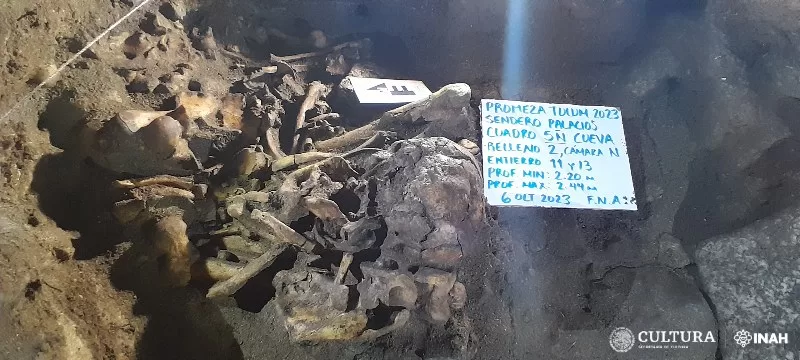 PROMEZA TULUM 2023
SENDERO PALACIOS
CUADRO 5N CUEVA
RELLENO 2, CÁMARA N
ENTIERRO 11 y 13
PROF MIN: 2.20 m
PROF. MAX: 2.44 m
6 OCT 2023 F.N.A.
CULTURA
SECRETARÍA DE CULTURA
INAH